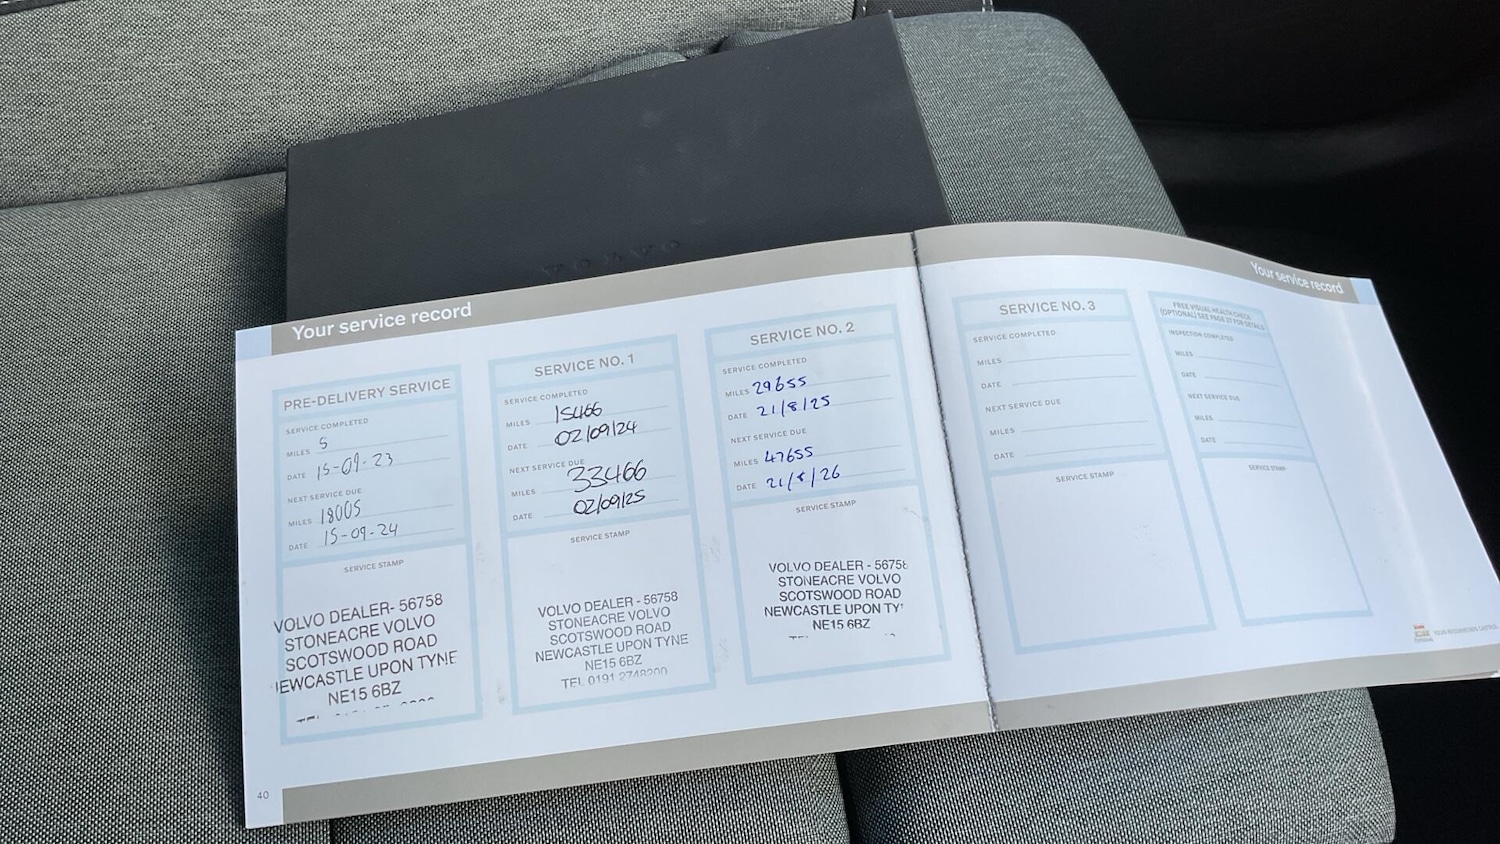 VOLVO
Your service record
PRE-DELIVERY SERVICE
SERVICE COMPLETED
MILES 5
DATE 15-09-23
NEXT SERVICE DUE
MILES 18005
DATE 15-09-24
SERVICE STAMP
VOLVO DEALER- 56758
STONEACRE VOLVO
SCOTSWOOD ROAD
NEWCASTLE UPON TYNE
NE15 6BZ
SERVICE NO. 1
SERVICE COMPLETED
MILES 15466
DATE 02/09/24
NEXT SERVICE DUE
MILES 33466
DATE 02/09/25
SERVICE STAMP
VOLVO DEALER - 56758
STONEACRE VOLVO
SCOTSWOOD ROAD
NEWCASTLE UPON TYNE
NE15 6BZ
TEL 0191 2748200
SERVICE NO. 2
SERVICE COMPLETED
MILES 29655
DATE 21/8/25
NEXT SERVICE DUE
MILES 47655
DATE 21/8/26
SERVICE STAMP
VOLVO DEALER - 56758
STONEACRE VOLVO
SCOTSWOOD ROAD
NEWCASTLE UPON TY
NE15 6BZ
40
Your service record
SERVICE NO. 3
SERVICE COMPLETED
MILES
DATE
NEXT SERVICE DUE
MILES
DATE
SERVICE STAMP
FREE VISUAL HEALTH CHECK
(OPTIONAL) SEE PAGE 37 FOR DETAILS
INSPECTION COMPLETED
MILES
DATE
NEXT SERVICE DUE
MILES
DATE
SERVICE STAMP